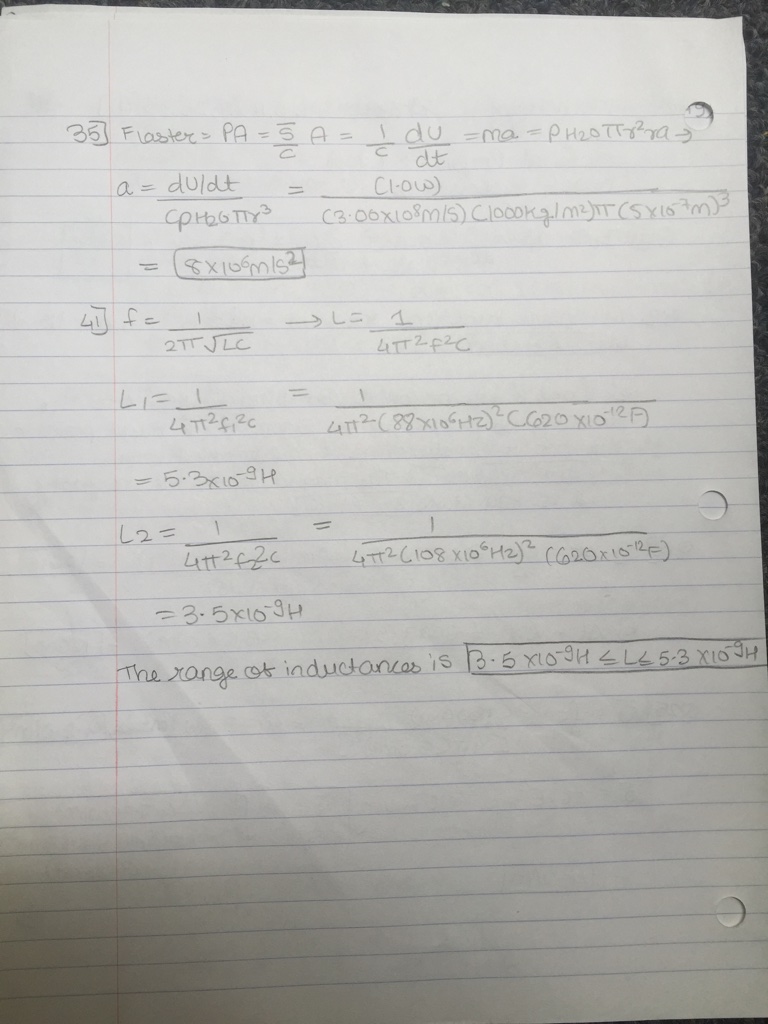 35] Flaster = PA = S̅/C A = 1/C dU/dt = ma = ρH2O πr²ra →
a = dU/dt / CρH2Oπr³ = (1.0W) / (3.00x10⁸m/s) (1000kg/m²)π (5x10⁻⁷m)³
= 8x10⁶m/s²
41] f = 1 / 2π√LC → L = 1 / 4π²f²C
L1 = 1 / 4π²f1²c = 1 / 4π²(88x10⁶Hz)² (620x10⁻¹²F)
= 5.3x10⁻⁹H
L2 = 1 / 4π²f2²c = 1 / 4π²(108x10⁶Hz)² (620x10⁻¹²F)
= 3.5x10⁻⁹H
The range of inductances is 3.5x10⁻⁹H ≤ L ≤ 5.3x10⁻⁹H